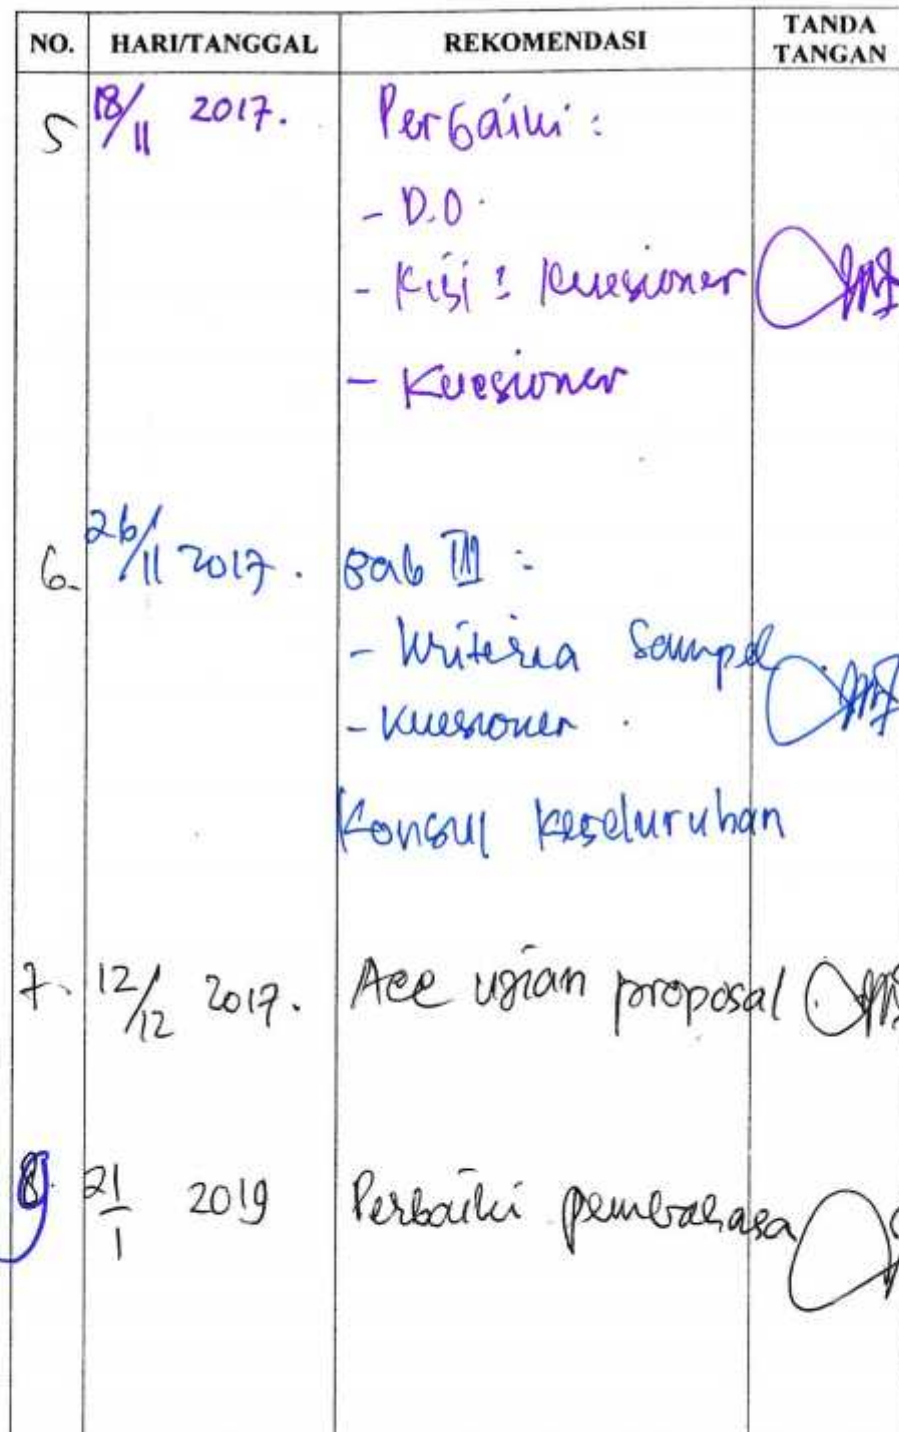 NO. HARI/TANGGAL REKOMENDASI TANDA TANGAN
5 18/11 2017. Perbaiki :
- D.O.
- Kisi : Kuesioner
- Kuesioner
6. 26/11 2017. Bab III :
- Kriteria Sampel
- Kuesioner .
Konsul keseluruhan
7. 12/12 2017. Acc ujian proposal
8. 21/1 2019 Perbaiki pembahasa